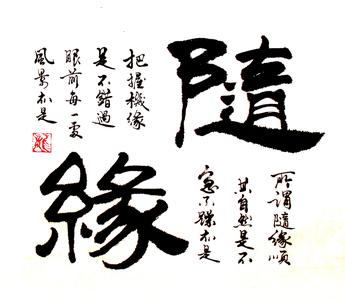 隨
緣
所謂隨緣順
其自然是不
急不躁亦是
把握機緣
是不錯過
眼前每一處
風景亦是